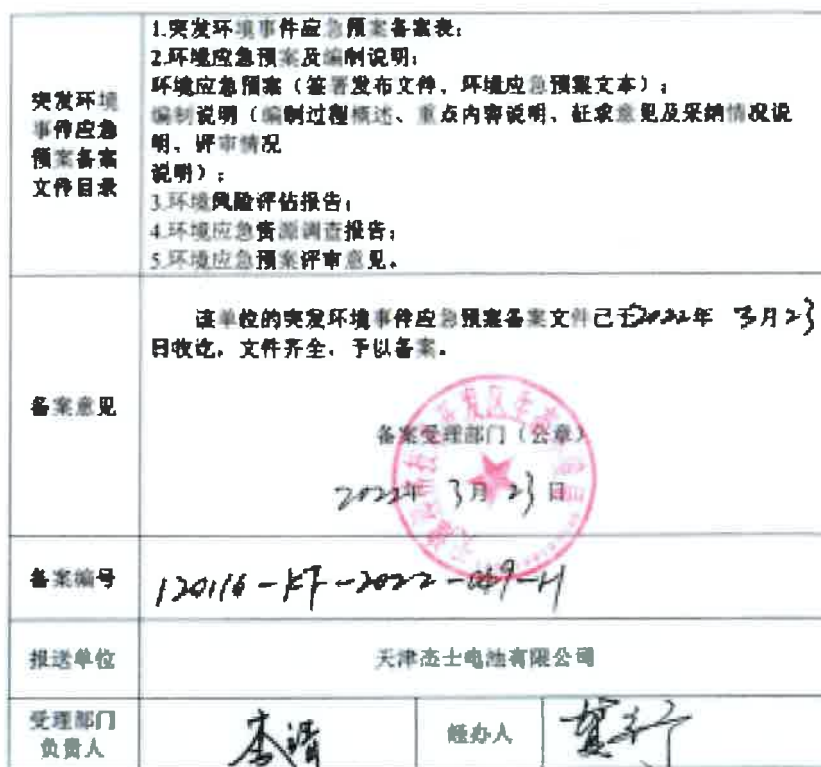 突发环境
事件应急
预案备案
文件目录
1.突发环境事件应急预案备案表；
2.环境应急预案及编制说明：
环境应急预案（签署发布文件、环境应急预案文本）；
编制说明（编制过程概述、重点内容说明、征求意见及采纳情况说
明、评审情况
说明）；
3.环境风险评估报告；
4.环境应急资源调查报告；
5.环境应急预案评审意见。
备案意见
该单位的突发环境事件应急预案备案文件已于2022年 3月23
日收讫，文件齐全，予以备案。
备案受理部门（公章）
2022年 3月 23日
备案编号
120116-KF-2022-049-H
报送单位
天津杰士电池有限公司
受理部门
负责人
李清
经办人